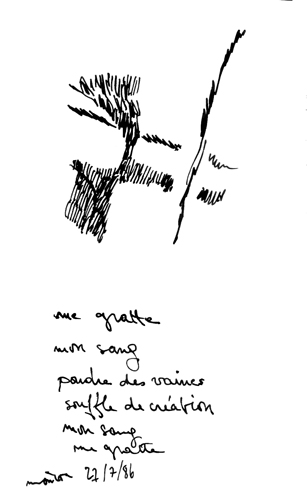 me gratte
mon sang
poudre des vaines
souffle de création
mon sang
me gratte
22/7/86